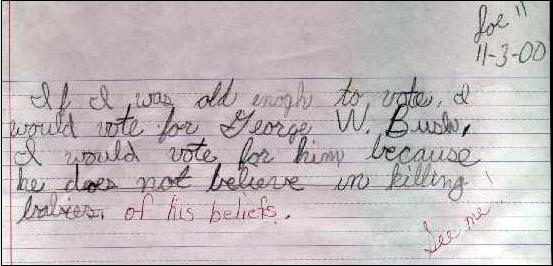 Joe 11
11-3-00
If I was old enogh to vote, I
would vote for George W. Bush,
I would vote for him because
he does not believe in killing
babies. of his beliefs.
See me!